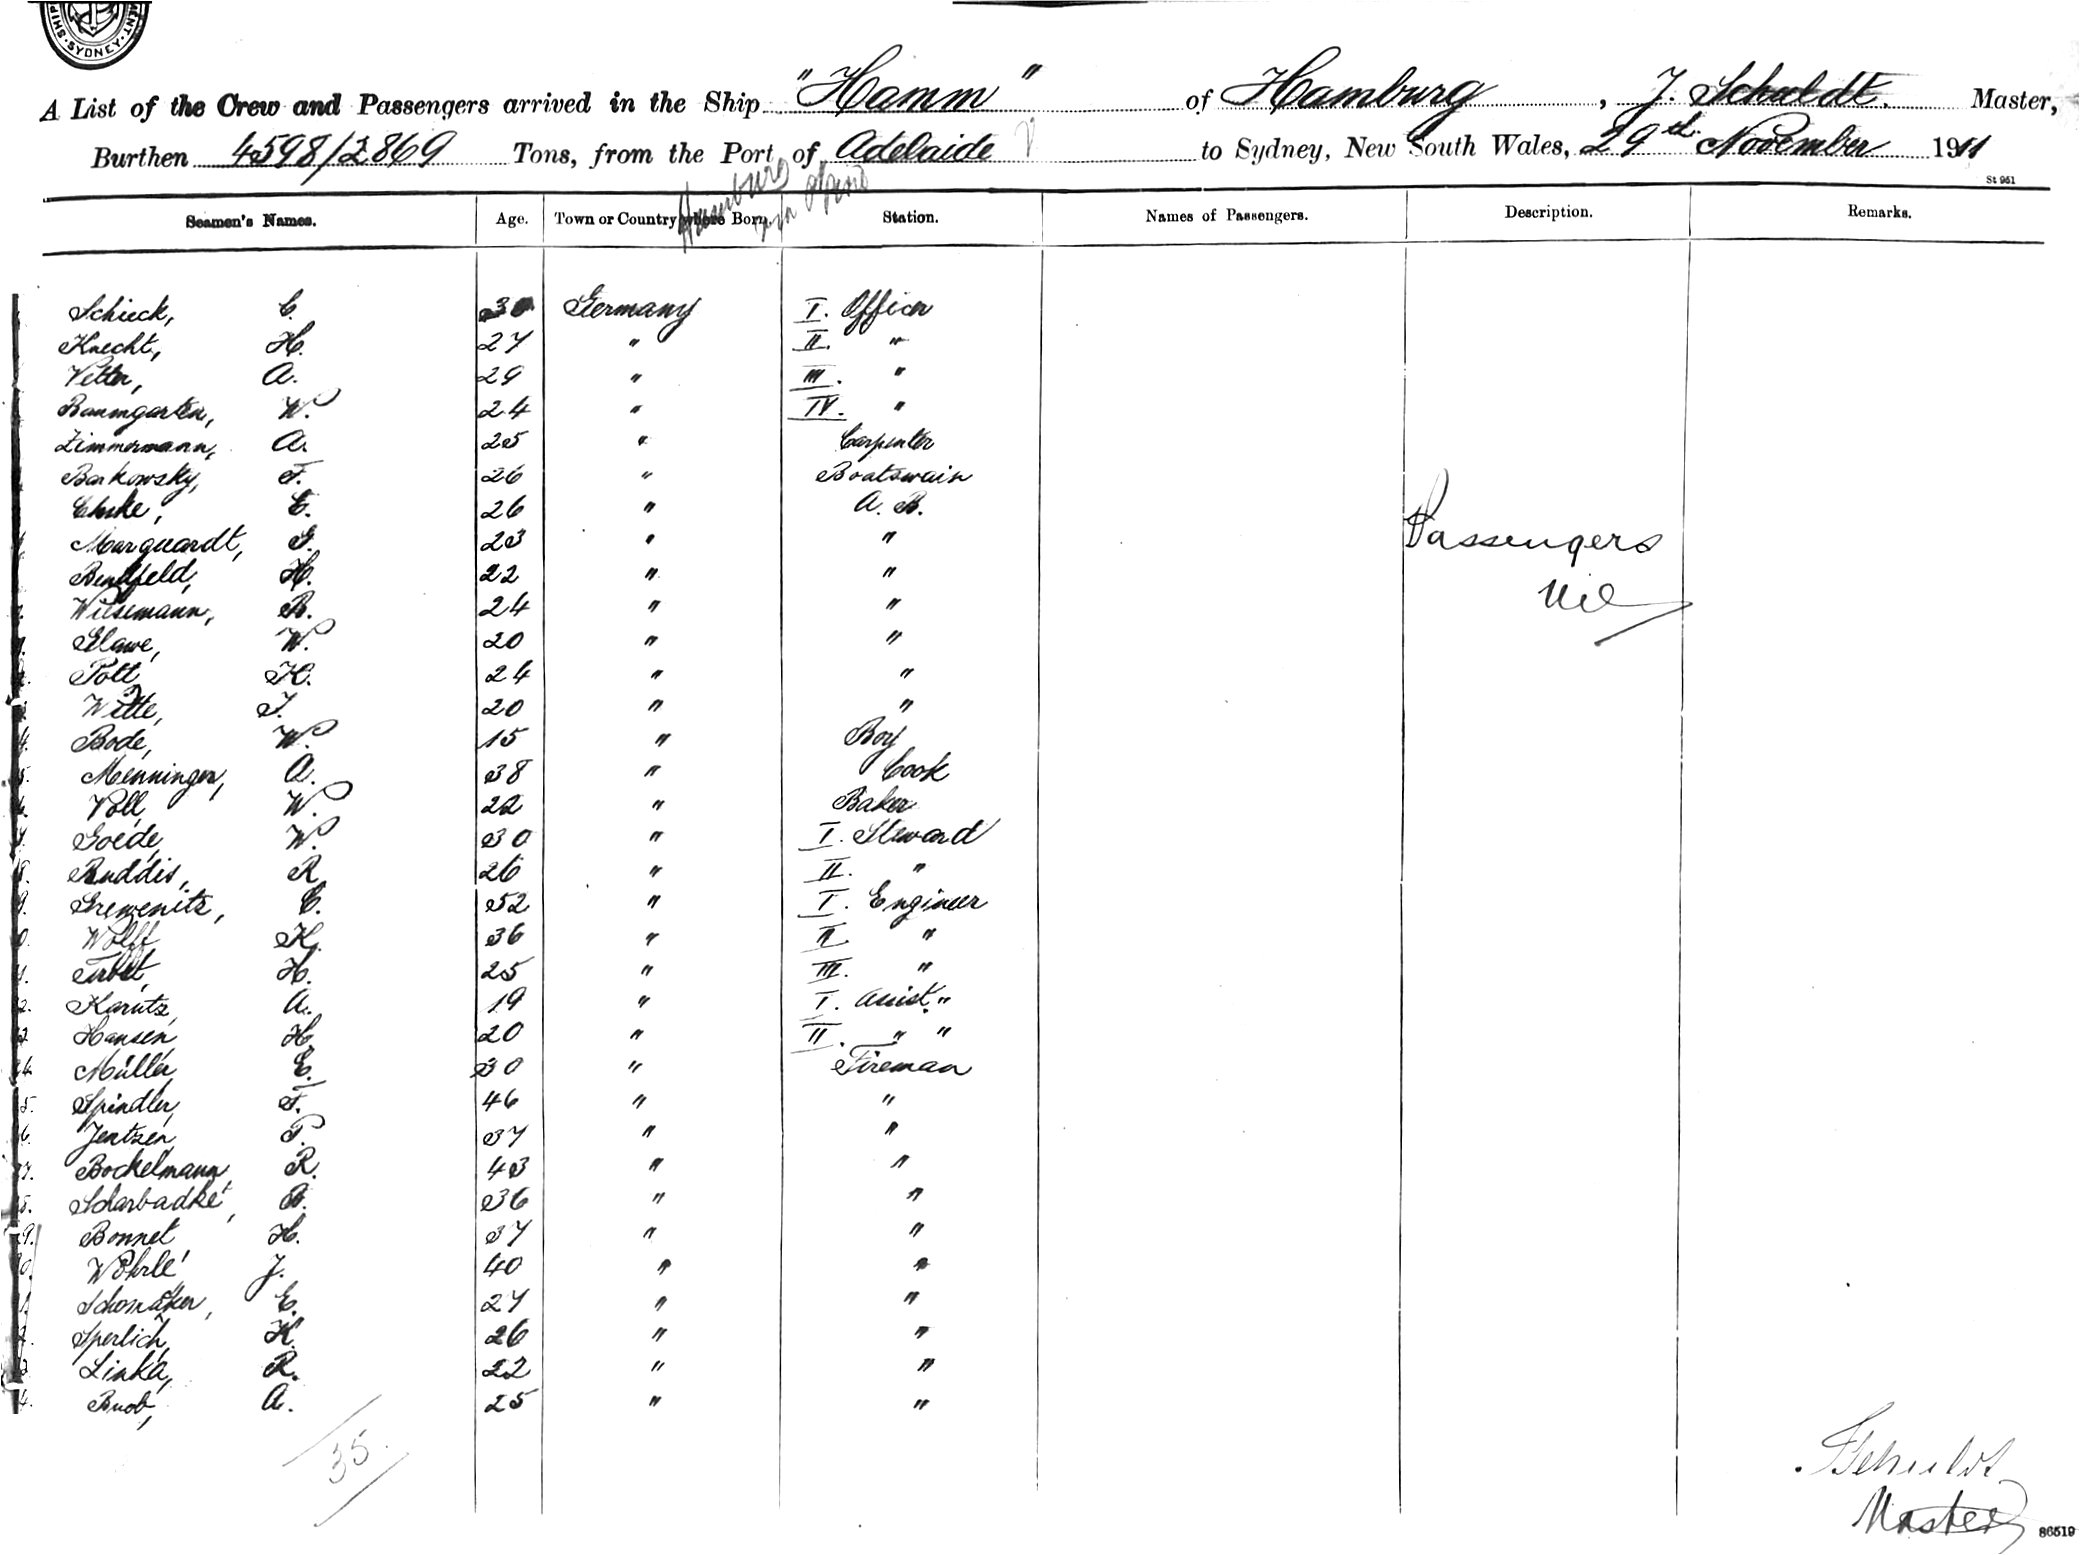 SYDNEY
A List of the Crew and Passengers arrived in the Ship "Hamm" of Hamburg, J. Schuldt. Master,
Burthen 4598/2869 Tons, from the Port of Adelaide to Sydney, New South Wales, 29th November 1911
Hamburg
St 951
Seamen's Names. Age. Town or Country where Born. Station. Names of Passengers. Description. Remarks.
Schieck, C. 30 Germany I. Officer
Knecht, H. 27 " II. "
Vetter, A. 29 " III. "
Baumgarten, W. 24 " IV. "
Zimmermann, A. 25 " Carpenter
Barkowsky, F. 26 " Boatswain
E. 26 " A. B.
Marquardt, G. 23 " "
Passengers
Benlfeld, H. 22 " "
Nil
Wiesemann, R. 24 " "
Glawe, W. 20 " "
Pott H. 24 " "
Witte, J. 20 " "
Bode, W. 15 " Boy
Menninger, A. 38 " Cook
Voll, W. 22 " Baker
Goede, W. 30 " I. Steward
Ruddis, R. 26 " II. "
Grewenitz, C. 52 " I. Engineer
Wolff, K. 36 " II. "
H. 25 " III. "
Karutz, A. 19 " I. Assist. "
Hansen, H. 20 " II. " "
Müller, E. 30 " Fireman
Spindler, F. 46 " "
Jentzen, P. 37 " "
Bockelmann, R. 43 " "
Scharbadke, 36 " "
Bonnet H. 37 " "
Wöhrle J. 40 " "
Schomaker, E. 27 " "
Sperlich, K. 26 " "
Linka, R. 22 " "
Buob, A. 25 " "
35.
J Schuldt
Master
86519